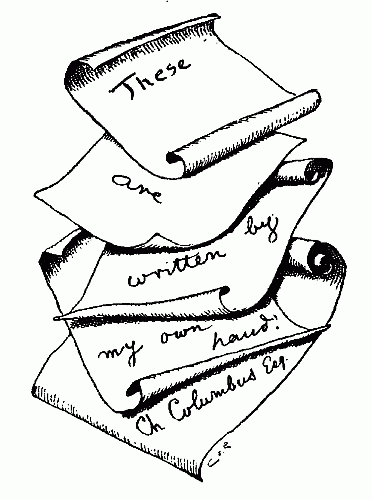 These
are
written by
my own
hand!
Ch Columbus Esq.